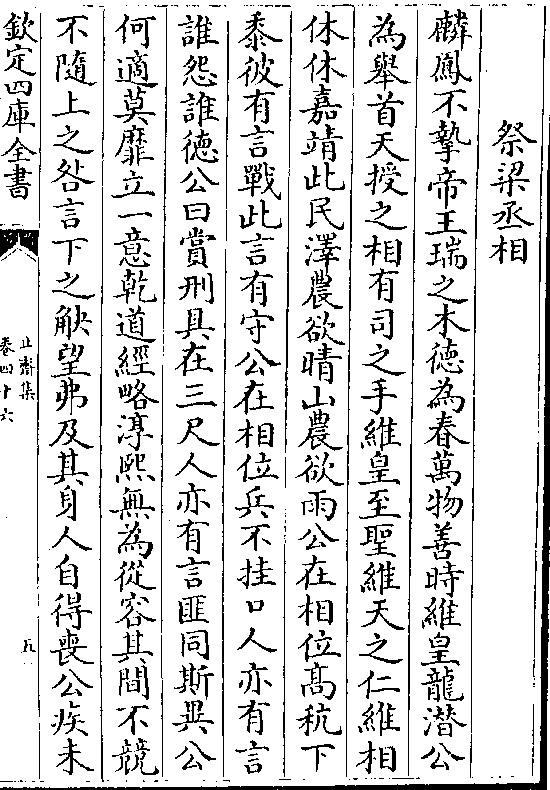 祭梁丞相
麟鳳不摯帝王瑞之木德為春萬物善時維皇龍潛公
為舉首天授之相有司之手維皇至聖維天之仁維相
休休嘉靖此民澤農欲晴山農欲雨公在相位髙秔下
黍彼有言戰此言有守公在相位兵不挂口人亦有言
誰怨誰徳公曰賞刑具在三尺人亦有言匪同斯異公
何適莫靡立一意乾道經略淳熙無為從容其間不競
不隨上之咎言下之觖望弗及其身人自得喪公疾未
欽定四庫全書
止齋集
卷四十六
五